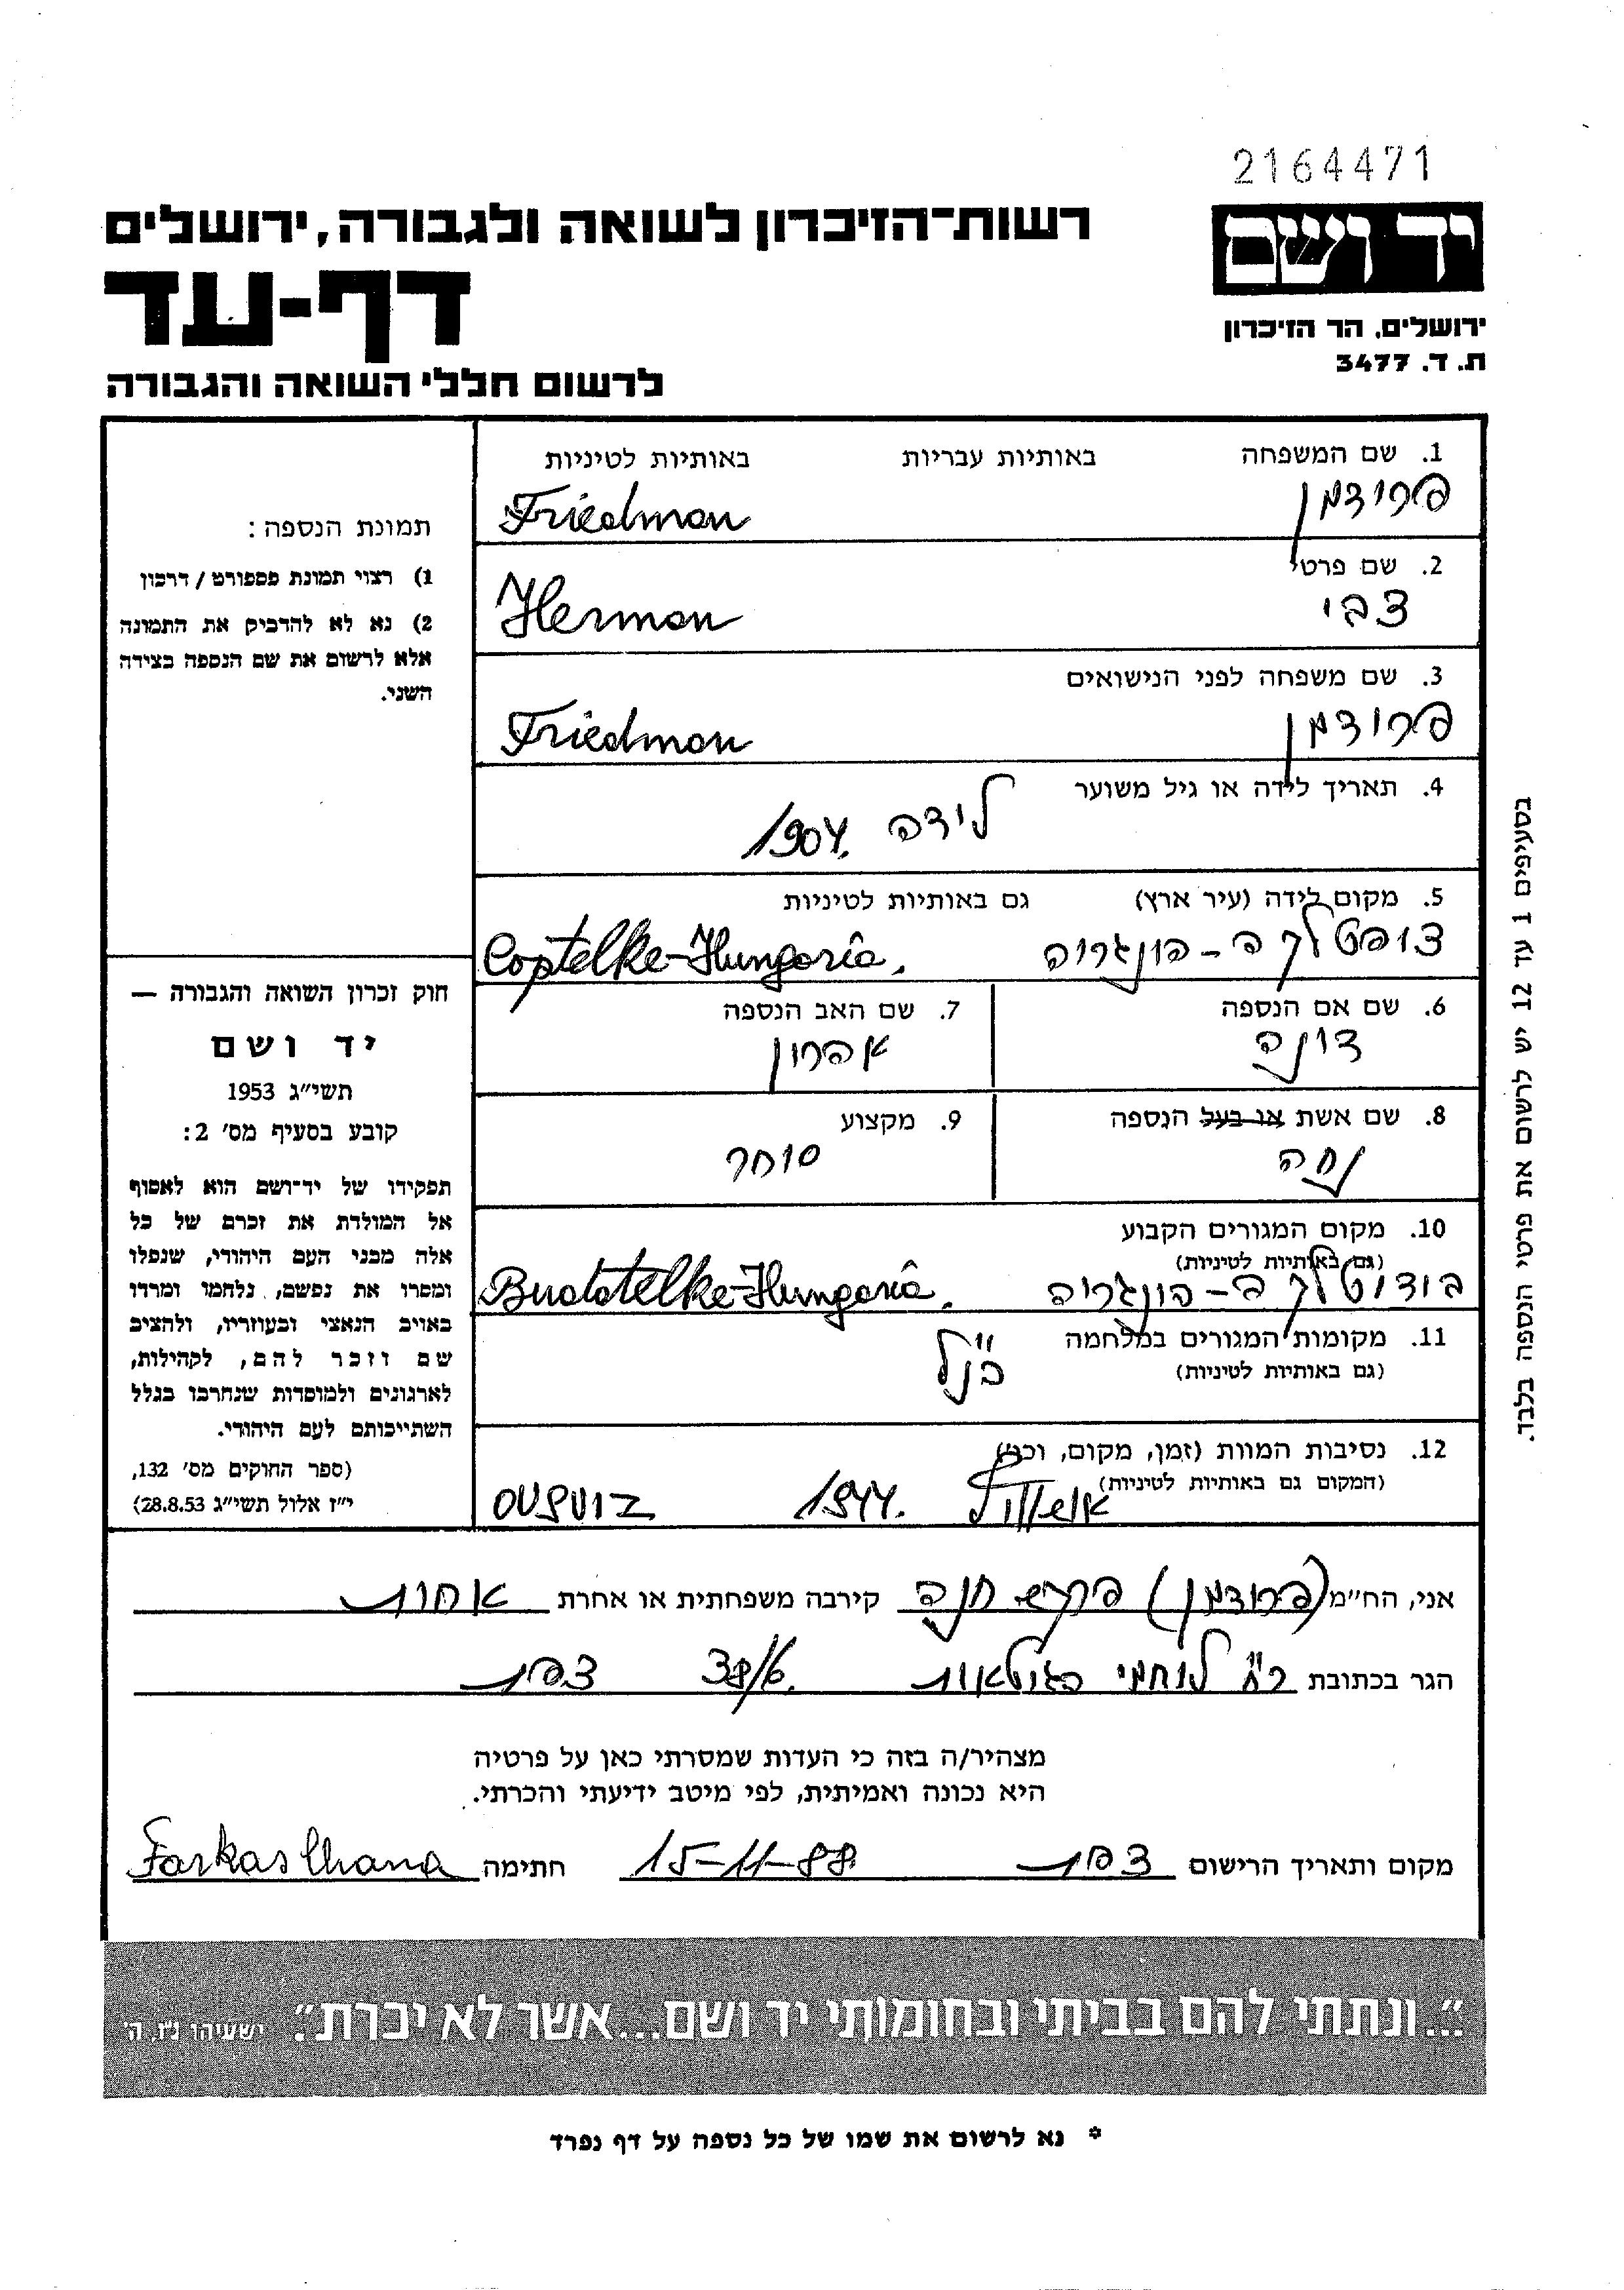 2164471
יד ושם
ירושלים, הר הזיכרון
ת. ד. 3477
רשות-הזיכרון לשואה ולגבורה, ירושלים
דף-עד
לרשום חללי השואה והגבורה
1. שם המשפחה באותיות עבריות באותיות לטיניות
פרידמן Friedman
2. שם פרטי
צבי Herman
3. שם משפחה לפני הנישואים
פרידמן Friedman
4. תאריך לידה או גיל משוער
לידה 1904.
5. מקום לידה (עיר ארץ) גם באותיות לטיניות
צופטלקה - הונגריה Coptelke-Hungaria.
6. שם אם הנספה 7. שם האב הנספה
אהרון
8. שם אשת או בעל הנספה 9. מקצוע
נחה סוחר
10. מקום המגורים הקבוע
(גם באותיות לטיניות)
בודוטלקה - הונגריה Budatelke-Hungaria.
11. מקומות המגורים במלחמה
(גם באותיות לטיניות)
כנ"ל
12. נסיבות המוות (זמן, מקום, וכו')
(המקום גם באותיות לטיניות)
1944.
תמונת הנספה:
1) רצוי תמונת פספורט / דרכון
2) נא לא להדביק את התמונה
אלא לרשום את שם הנספה בצידה
השני.
חוק זכרון השואה והגבורה —
יד ושם
תשי"ג 1953
קובע בסעיף מס' 2:
תפקידו של יד-ושם הוא לאסוף
אל המולדת את זכרם של כל
אלה מבני העם היהודי, שנפלו
ומסרו את נפשם, נלחמו ומרדו
באויב הנאצי ובעוזריו, ולהציב
שם וזכר להם, לקהילות,
לארגונים ולמוסדות שנחרבו בגלל
השתייכותם לעם היהודי.
(ספר החוקים מס' 132,
י"ז אלול תשי"ג 28.8.53)
בסעיפים 1 עד 12 יש לרשום את פרטי הנספה בלבד.
אני, הח"מ (פרידמן) פרקש חנה קירבה משפחתית או אחרת אחות
הגר בכתובת רח' לוחמי הגיטאות 38/6. צפת
מצהיר/ה בזה כי העדות שמסרתי כאן על פרטיה
היא נכונה ואמיתית, לפי מיטב ידיעתי והכרתי.
מקום ותאריך הרישום צפת 15-11-88 חתימה Farkas Chana
"...ונתתי להם בביתי ובחומותי יד ושם...אשר לא יכרת". ישעיהו נ"ו, ה'
* נא לרשום את שמו של כל נספה על דף נפרד